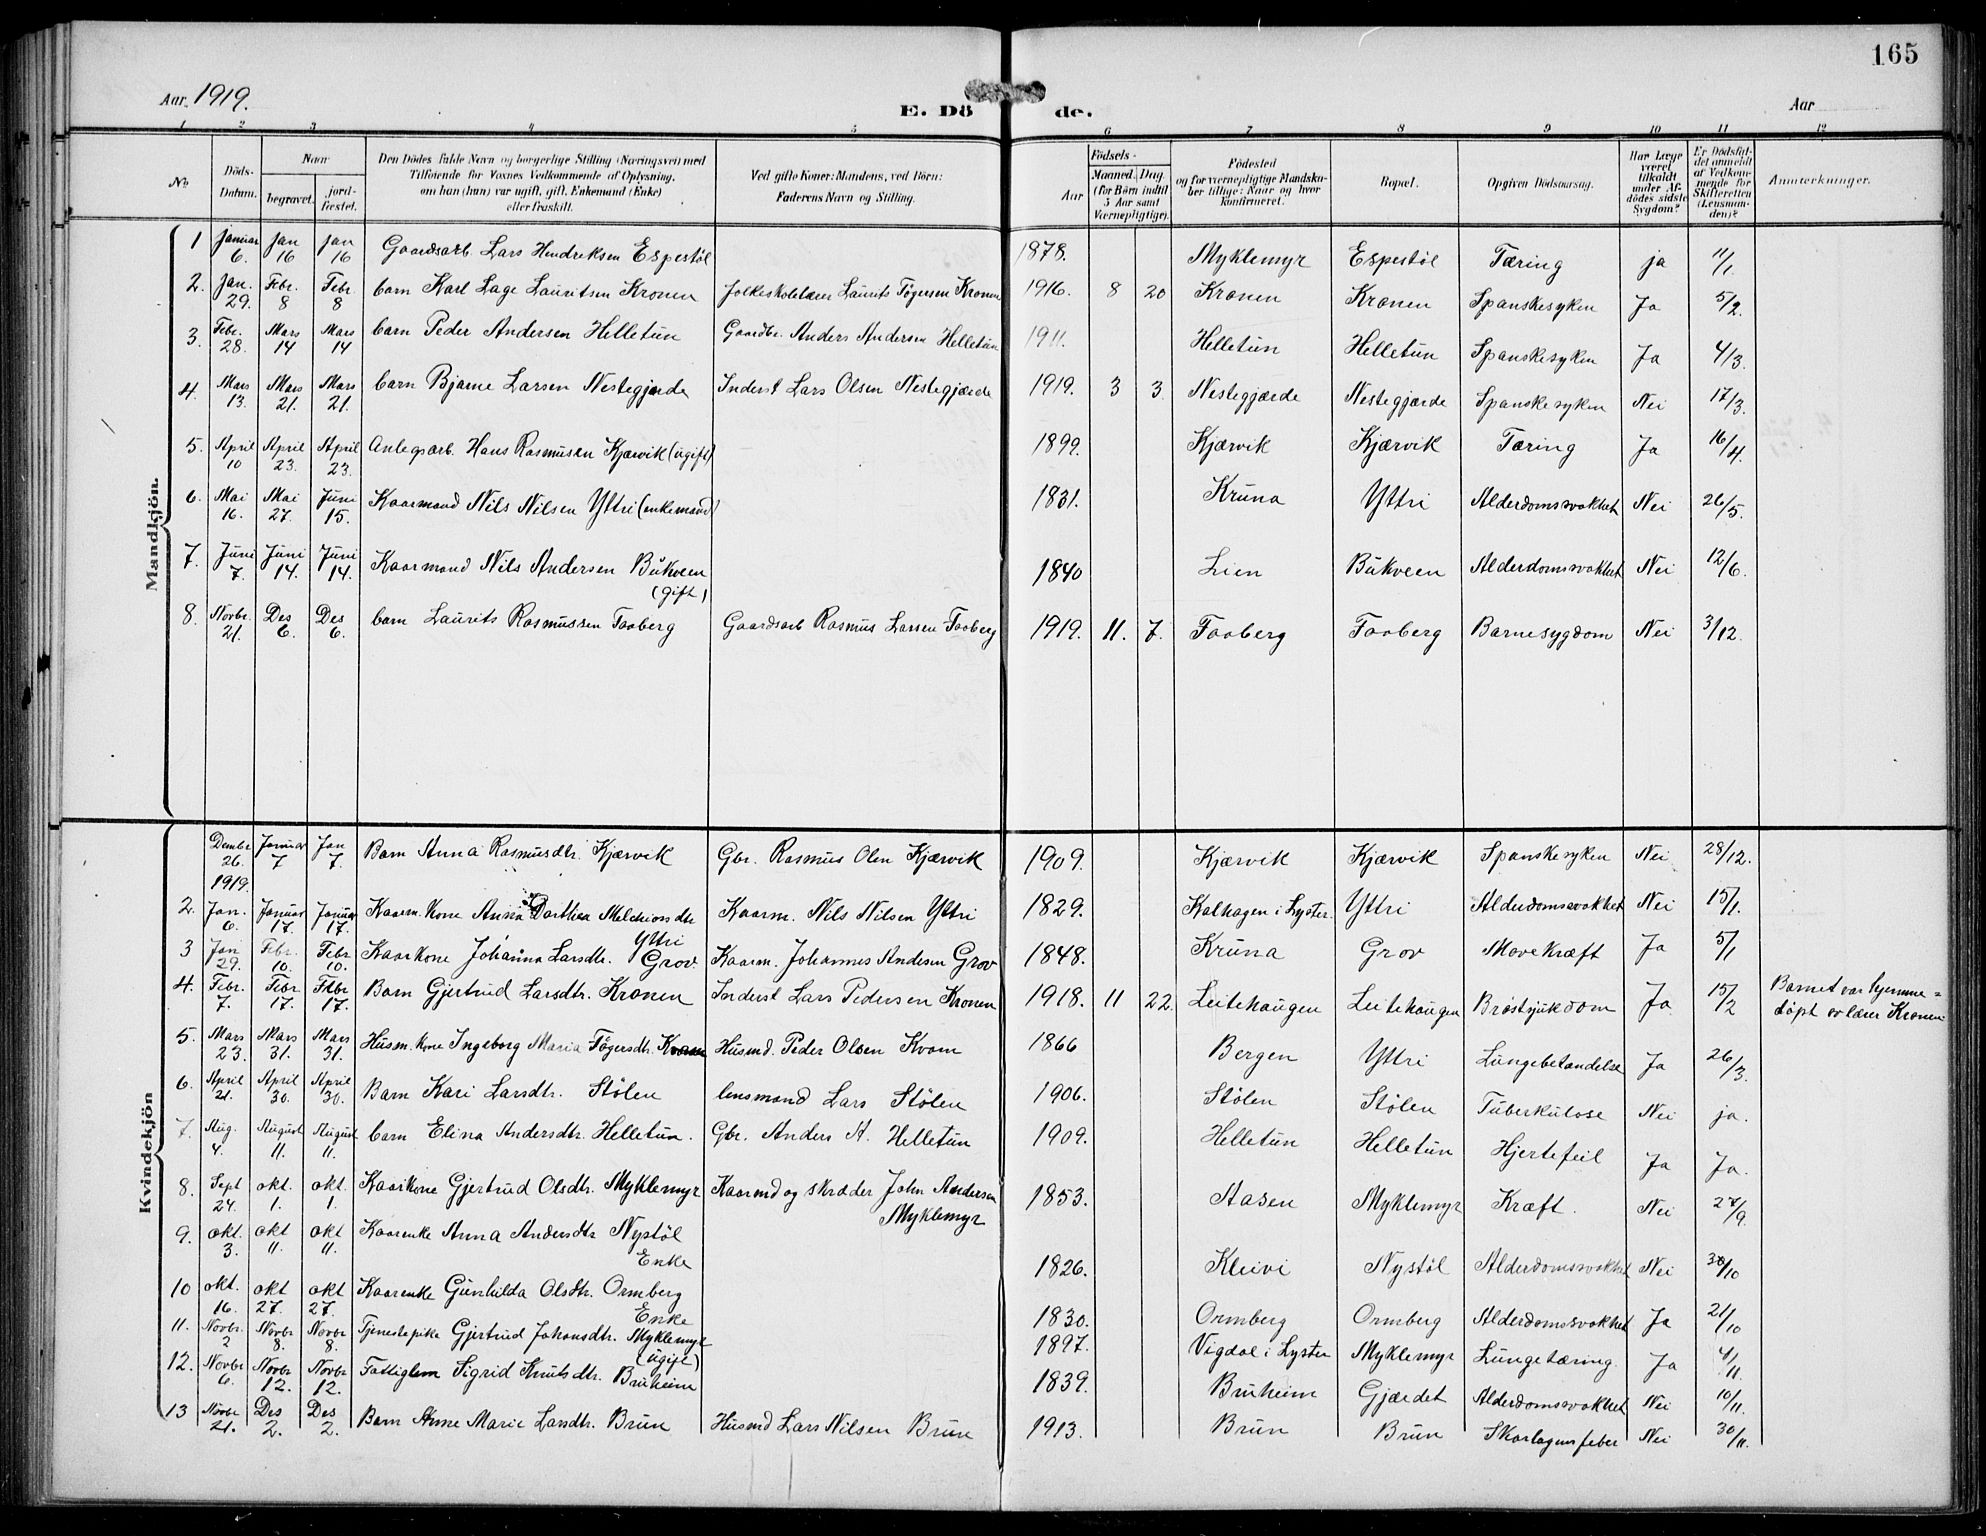 165
Aar 1919.
E. Dö de.
Aar
1 2 3 4 5 6 7 8 9 10 11 12
No.
Döds-Datum.
Naar
begravet.
jord-fæstet.
Den Dödes fulde Navn og borgerlige Stilling (Næringsvei) med
Tilföiende for Voxnes Vedkommende af Oplysning,
om han (hun) var ugift, gift, Enkemand (Enke)
eller fraskilt.
Ved gifte Koner: Mandens, ved Börn:
Faderens Navn og Stilling.
Födsels-
Aar
Maaned. Dag.
(for Börn indtil
5 Aar samt
Værnepligtige).
Födested
og for værnepligtige Mandska-
ber tillige: Naar og hvor
konfirmeret.
Bopæl.
Opgiven Dödsaarsag.
Har Læge
været
tilkaldt
under Af-
dödes sidste
Sygdom?
Er Dödsfal-
det anmeldt
af Vedkom-
mende for
Skifteretten
(Lensman-
den)?
Anmærkninger.
Mandkjön.
1 Januar 6. Jan 16 Jan 16 Gaardsarb. Lars Hendriksen Espestöl 1878. Myklemyr Espestöl Tæring ja 11/1.
2. Jan. 29. Febr. 8 Febr. 8 barn Karl Lage Lauritsen Kronen Folkeskolelærer Laurits Tögersen Kronen 1916. 8 20 Kronen Kronen Spanskesyken Ja 5/2.
3. Febr. 28. Mars 14 Mars 14 barn Peder Andersen Helletun Gaardbr. Anders Andersen Helletun 1911. Helletun Helletun Spanskesyken Ja 4/3.
4. Mars 13. Mars 21. Mars 21. barn Bjarne Larsen Nestegjærde Inderst Lars Olsen Nestegjærde 1919. 3 3 Nestegjærde Nestegjærde Spanskesyken Nei 17/3.
5. April 10 April 23. April 23. Anlegsarb. Hans Rasmusen Kjærvik (ugift) 1899. Kjærvik Kjærvik Tæring Ja 16/4.
6. Mai 16. Mai 27. Juni 15. Kaarmand Nils Nilsen Yttri (enkemand) 1831. Kruna Yttri Alderdomssvakhet Nei 26/5.
7. Juni 7. Juni 14. Juni 14. Kaarmand Nils Andersen Bukveen
(gift) 1840 Lien Bukveen Alderdomssvakhet Nei 12/6.
8. Novbr. 21. Des 6. Des 6. barn Laurits Rasmussen Taaberg Gaardsarb Rasmus Larsen Taaberg 1919. 11. 7. Taaberg Taaberg Barnesygdom Nei 3/12.
Kvindekjön
Dembr 26. Januar 7 Jan 7. Barn Anna Rasmusdtr. Kjærvik Gbr. Rasmus Olen Kjærvik 1909. Kjærvik Kjærvik Spanskesyken Nei 28/12.
1919.
2. Jan. 6. Januar 17. Januar 17. Kaarm. Kone Anna Dorthea Melchiorsdtr
Yttri Kaarm. Nils Nilsen Yttri 1829. Kalhagen i Lyster. Yttri Alderdomssvakhet Nei 15/1.
3 Jan 29. Febr. 10. Febr 10. Kaarkone Johanna Larsdtr. Grov. Kaarm. Johannes Andersen Grov 1848. Kruna Grov Mavekræft Ja 5/1
4. Febr. 7. Febr 17. Febr 17. Barn Gjertrud Larsdtr. Kronen Inderst Lars Pedersen Kronen 1918. 11 22. Leitehaugen Leitehaugen Brøstsjukdom Ja 15/2 Barnet var hjemme-
døpt av lærer Kronen
5. Mars 23. Mars 31. Mars 31. Husm. kone Ingeborg Maria Tögersdtr. Kvam Husmd. Peder Olsen Kvam 1866 Bergen Yttri Lungebetændelse Ja 26/3.
6. April 21. April 30. April 30. Barn Kari Larsdtr. Stölen lensmand Lars Stölen 1906. Stölen Stölen Tuberkulose Nei ja.
7. Aug. 4. August 11. August 11. barn Elina Andersdtr. Helletun. Gbr. Anders A. Helletun 1909. Helletun Helletun Hjertefeil Ja Ja.
8. Sept 24. okt. 1. okt. 1. Kaarkone Gjertrud Olsdtr. Myklemyr Kaarmd og skræder John Andersen
Myklemyr 1853. Aasen Myklemyr Kræft. Nei 27/9.
9. okt. 3. okt 11. okt 11. Kaarenke Anna Andersdtr Nystöl
Enke 1826. Kleivi Nystöl Alderdomssvakhet Nei 30/10
10 okt. 16. okt 27. okt 27. Kaarenke Gunhilda Olsdtr. Ormberg
Enke 1830. Ormberg Ormberg Alderdomssvakhet Ja 21/10
11. Novbr. 2 Novbr 8. Novbr 8. Tjenestepike Gjertrud Johansdtr. Myklemyr
(ugift) 1897. Vigdal i Lyster Myklemyr Lungetæring. Ja 4/11.
12. Novbr 6. Novbr 12. Novbr 12. Fattiglem Sigrid Knutsdtr. Bruheim 1839. Bruheim Gjærdet Alderdomssvakhet Nei 10/11.
13 Novbr 21. Des 2. Des 2. Barn Anne Marie Larsdtr. Brun Husmd Lars Nilsen Brun 1913. Brun Brun Skarlagensfeber Nei 30/11.